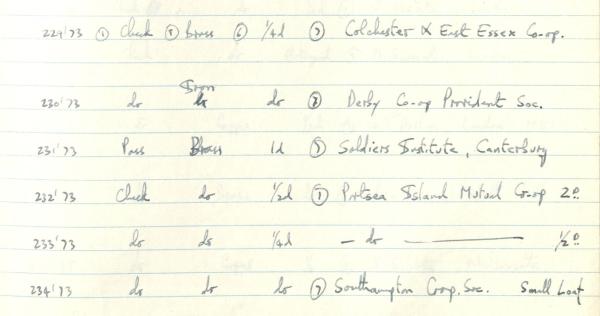 229'73 ① Check ⑤ brass ⑥ 1/4d ⑦ Colchester & East Essex Co-op.
Iron
230'73 do do ⑦ Derby Co-op Provident Soc.
231'73 Pass Brass 1d ⑦ Soldiers Institute, Canterbury
232'73 Check do 1/2d ⑦ Portsea Island Mutual Co-op 2D.
233'73 do do 1/4d — do — 1/2D
234'73 do do do ⑦ Southampton Coop. Soc. Small Loaf